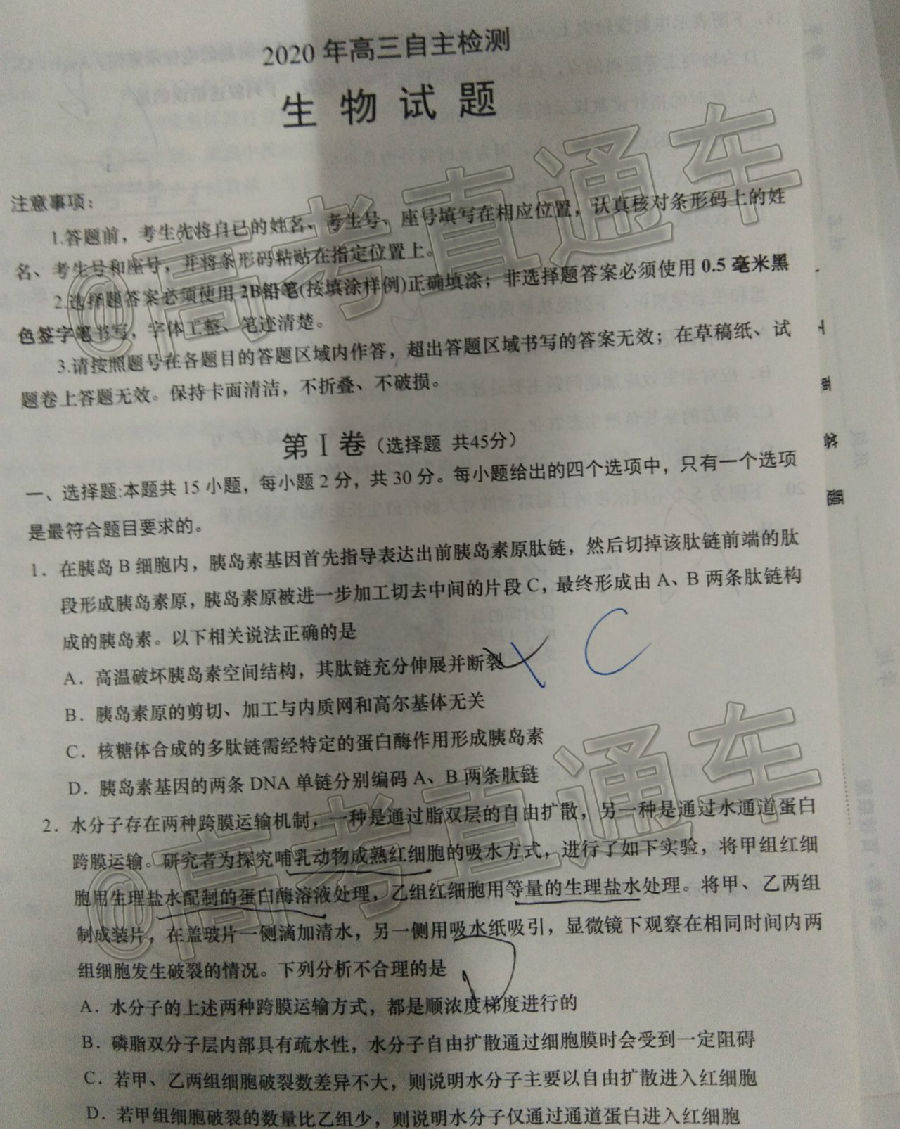 2020 年高三自主检测
生 物 试 题
注意事项：
1.答题前，考生先将自己的姓名、考生号、座号填写在相应位置，认真核对条形码上的姓
名、考生号和座号，并将条形码粘贴在指定位置上。
2.选择题答案必须使用 2B铅笔(按填涂样例)正确填涂；非选择题答案必须使用 0.5 毫米黑
色签字笔书写，字体工整、笔迹清楚。
3.请按照题号在各题目的答题区域内作答，超出答题区域书写的答案无效；在草稿纸、试
题卷上答题无效。保持卡面清洁，不折叠、不破损。
第 I 卷（选择题 共45分）
一、选择题:本题共 15 小题，每小题 2 分，共 30 分。每小题给出的四个选项中，只有一个选项
是最符合题目要求的。
1．在胰岛 B 细胞内，胰岛素基因首先指导表达出前胰岛素原肽链，然后切掉该肽链前端的肽
段形成胰岛素原，胰岛素原被进一步加工切去中间的片段 C，最终形成由 A、B 两条肽链构
成的胰岛素。以下相关说法正确的是
A．高温破坏胰岛素空间结构，其肽链充分伸展并断裂
C
B．胰岛素原的剪切、加工与内质网和高尔基体无关
C．核糖体合成的多肽链需经特定的蛋白酶作用形成胰岛素
D．胰岛素基因的两条 DNA 单链分别编码 A、B 两条肽链
2．水分子存在两种跨膜运输机制，一种是通过脂双层的自由扩散，另一种是通过水通道蛋白
跨膜运输。研究者为探究哺乳动物成熟红细胞的吸水方式，进行了如下实验，将甲组红细
胞用生理盐水配制的蛋白酶溶液处理，乙组红细胞用等量的生理盐水处理。将甲、乙两组
制成装片，在盖玻片一侧滴加清水，另一侧用吸水纸吸引，显微镜下观察在相同时间内两
组细胞发生破裂的情况。下列分析不合理的是
D
A．水分子的上述两种跨膜运输方式，都是顺浓度梯度进行的
B．磷脂双分子层内部具有疏水性，水分子自由扩散通过细胞膜时会受到一定阻碍
C．若甲、乙两组细胞破裂数差异不大，则说明水分子主要以自由扩散进入红细胞
D．若甲组细胞破裂的数量比乙组少，则说明水分子仅通过通道蛋白进入红细胞
答
题
@高考直通车
@高考直通车